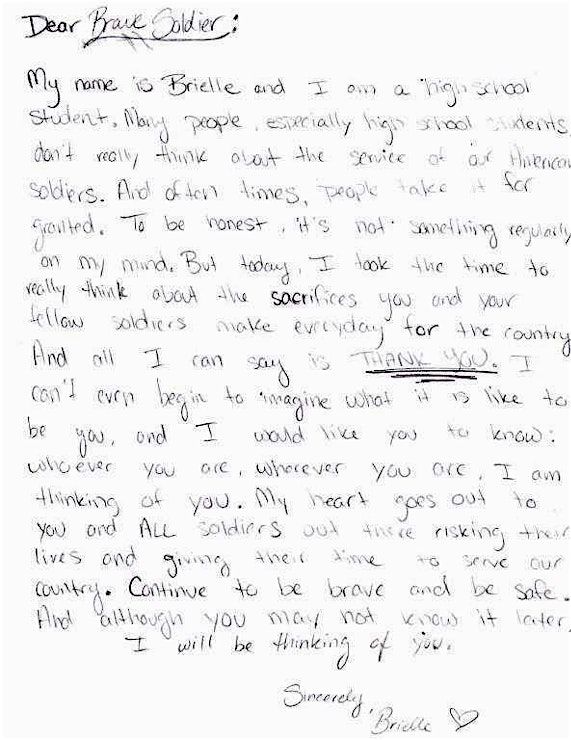 Dear Brave Soldier:
My name is Brielle and I am a high school
student. Many people, especially high school students,
don't really think about the service of our American
soldiers. And often times, people take it for
granted. To be honest, it's not something regularly
on my mind. But today, I took the time to
really think about the sacrifices you and your
fellow soldiers make everyday for the country
And all I can say is THANK YOU. I
can't even begin to imagine what it is like to
be you, and I would like you to know:
whoever you are, wherever you are, I am
thinking of you. My heart goes out to
you and ALL soldiers out there risking their
lives and giving their time to serve our
country. Continue to be brave and be safe.
And although you may not know it later,
I will be thinking of you.
Sincerely,
Brielle ♡